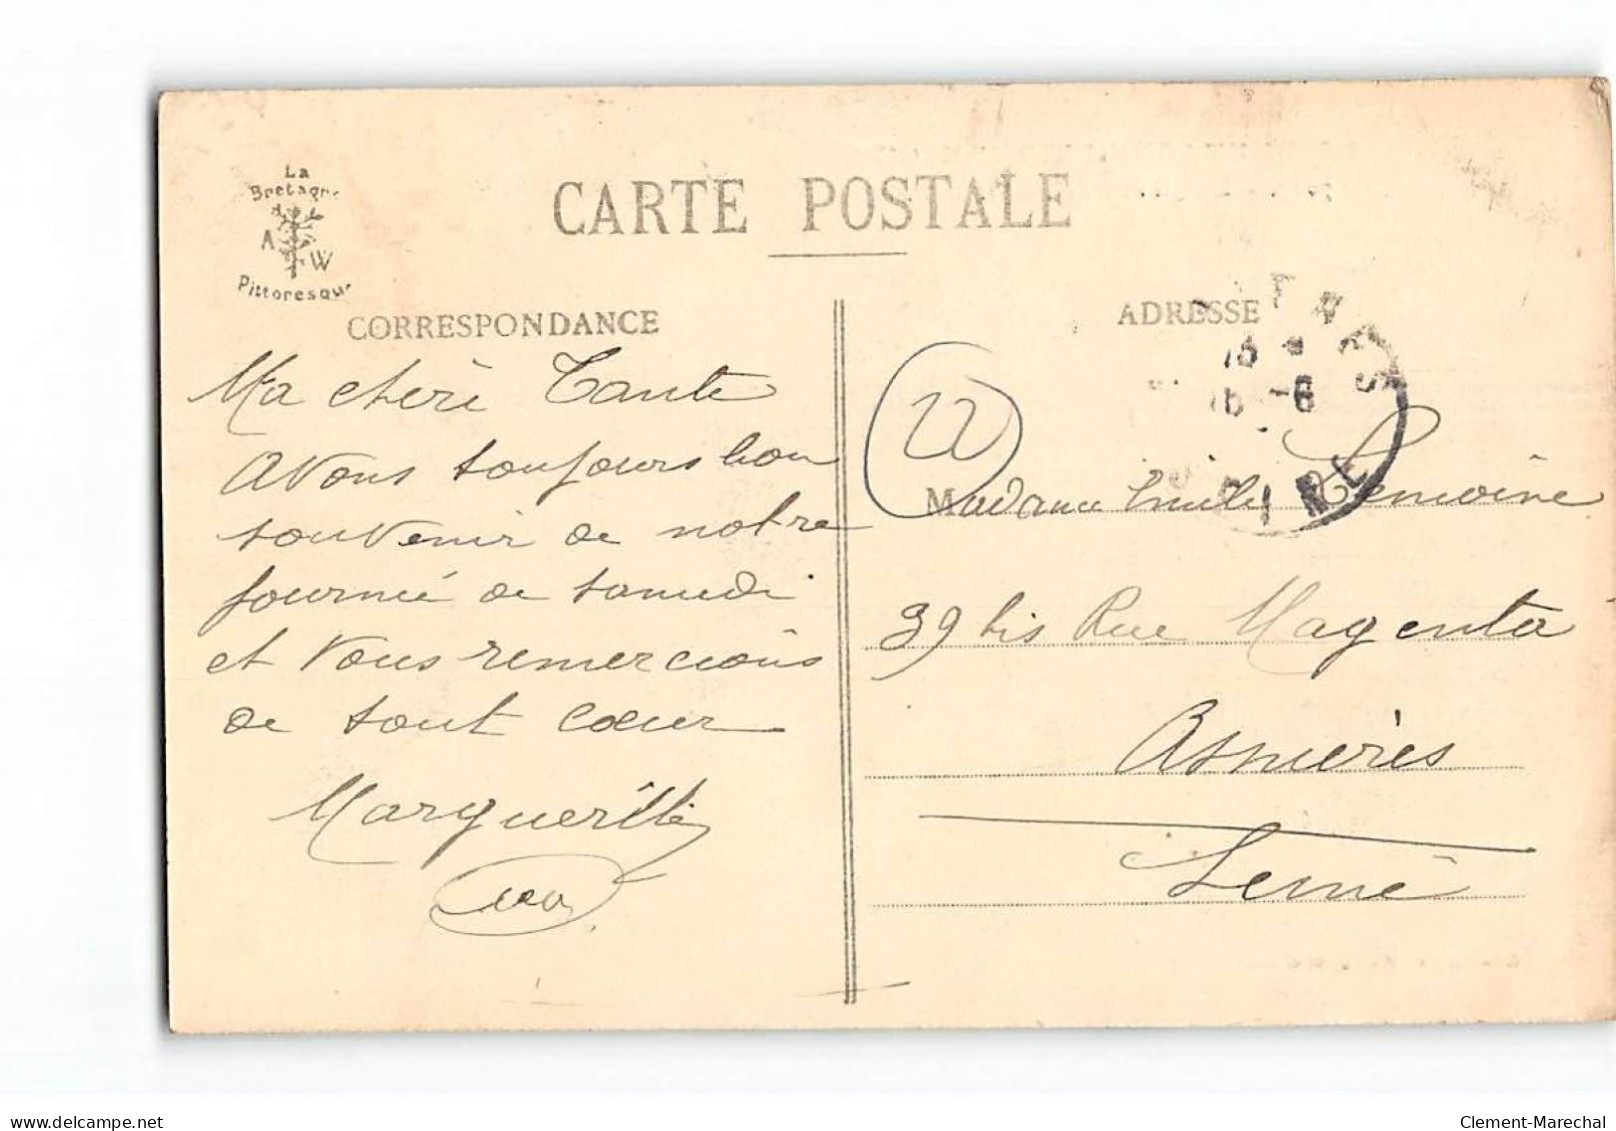 La
Bretagne
A W
Pittoresque
CARTE POSTALE
CORRESPONDANCE
ADRESSE
Ma chère Tante
avons toujours bon
souvenir de notre
journée de samedi
et vous remercions
de tout cœur
Marguerite
Madame Emile Lemoine
39 bis Rue Magenta
Asnières
Seine
delcampe.net
Clement-Marechal